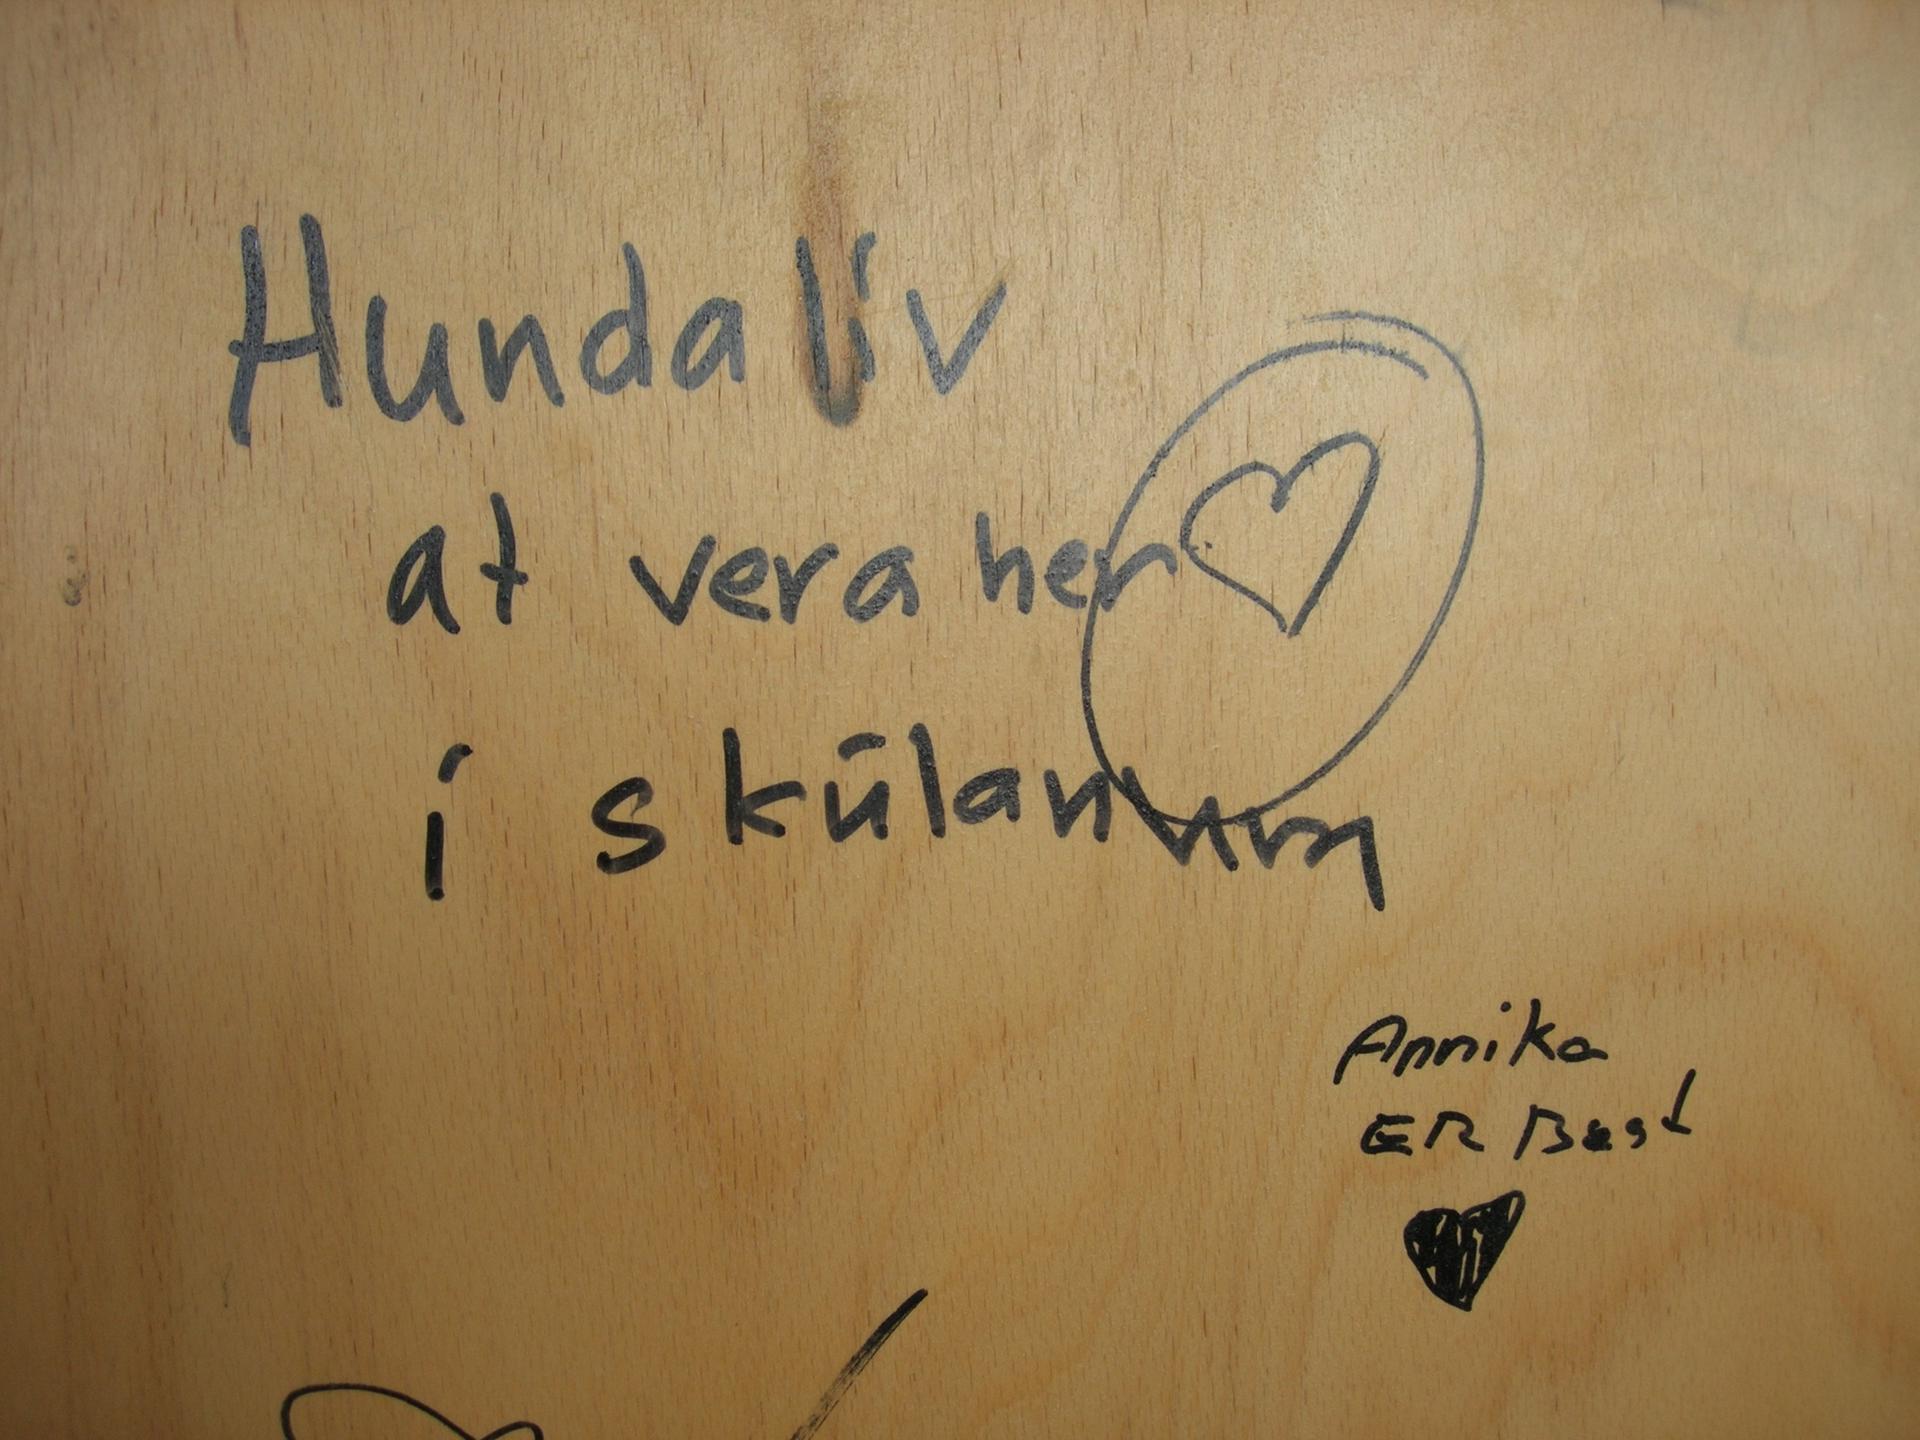 Hundalív
at vera her
í skúlanum
Annika
ER Best